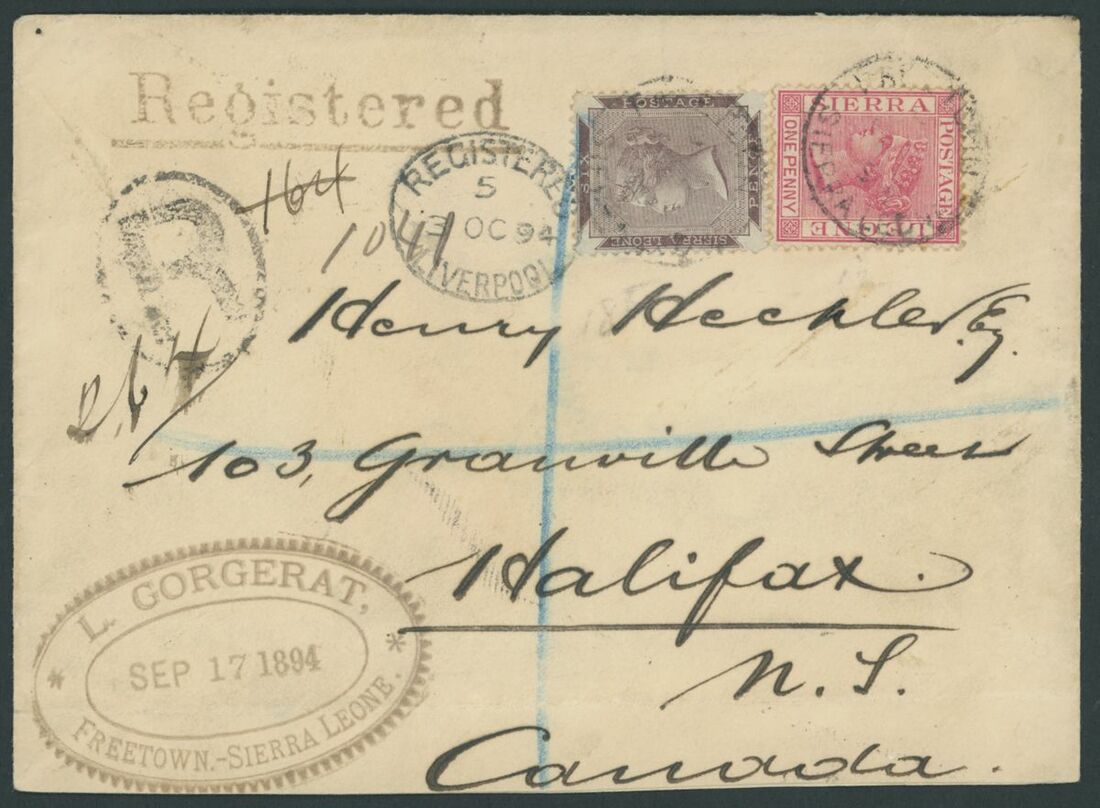 Registered
POSTAGE
SIX
PENCE
SIERRA LEONE
SIERRA
POSTAGE
LEONE
ONE PENNY
REGISTERED
5
3 OC 94
LIVERPOOL
164
R
Henry Hechler Esq.
103, Granville Street
Halifax.
N. S.
Canada.
L. GORGERAT,
SEP 17 1894
FREETOWN.-SIERRA LEONE.